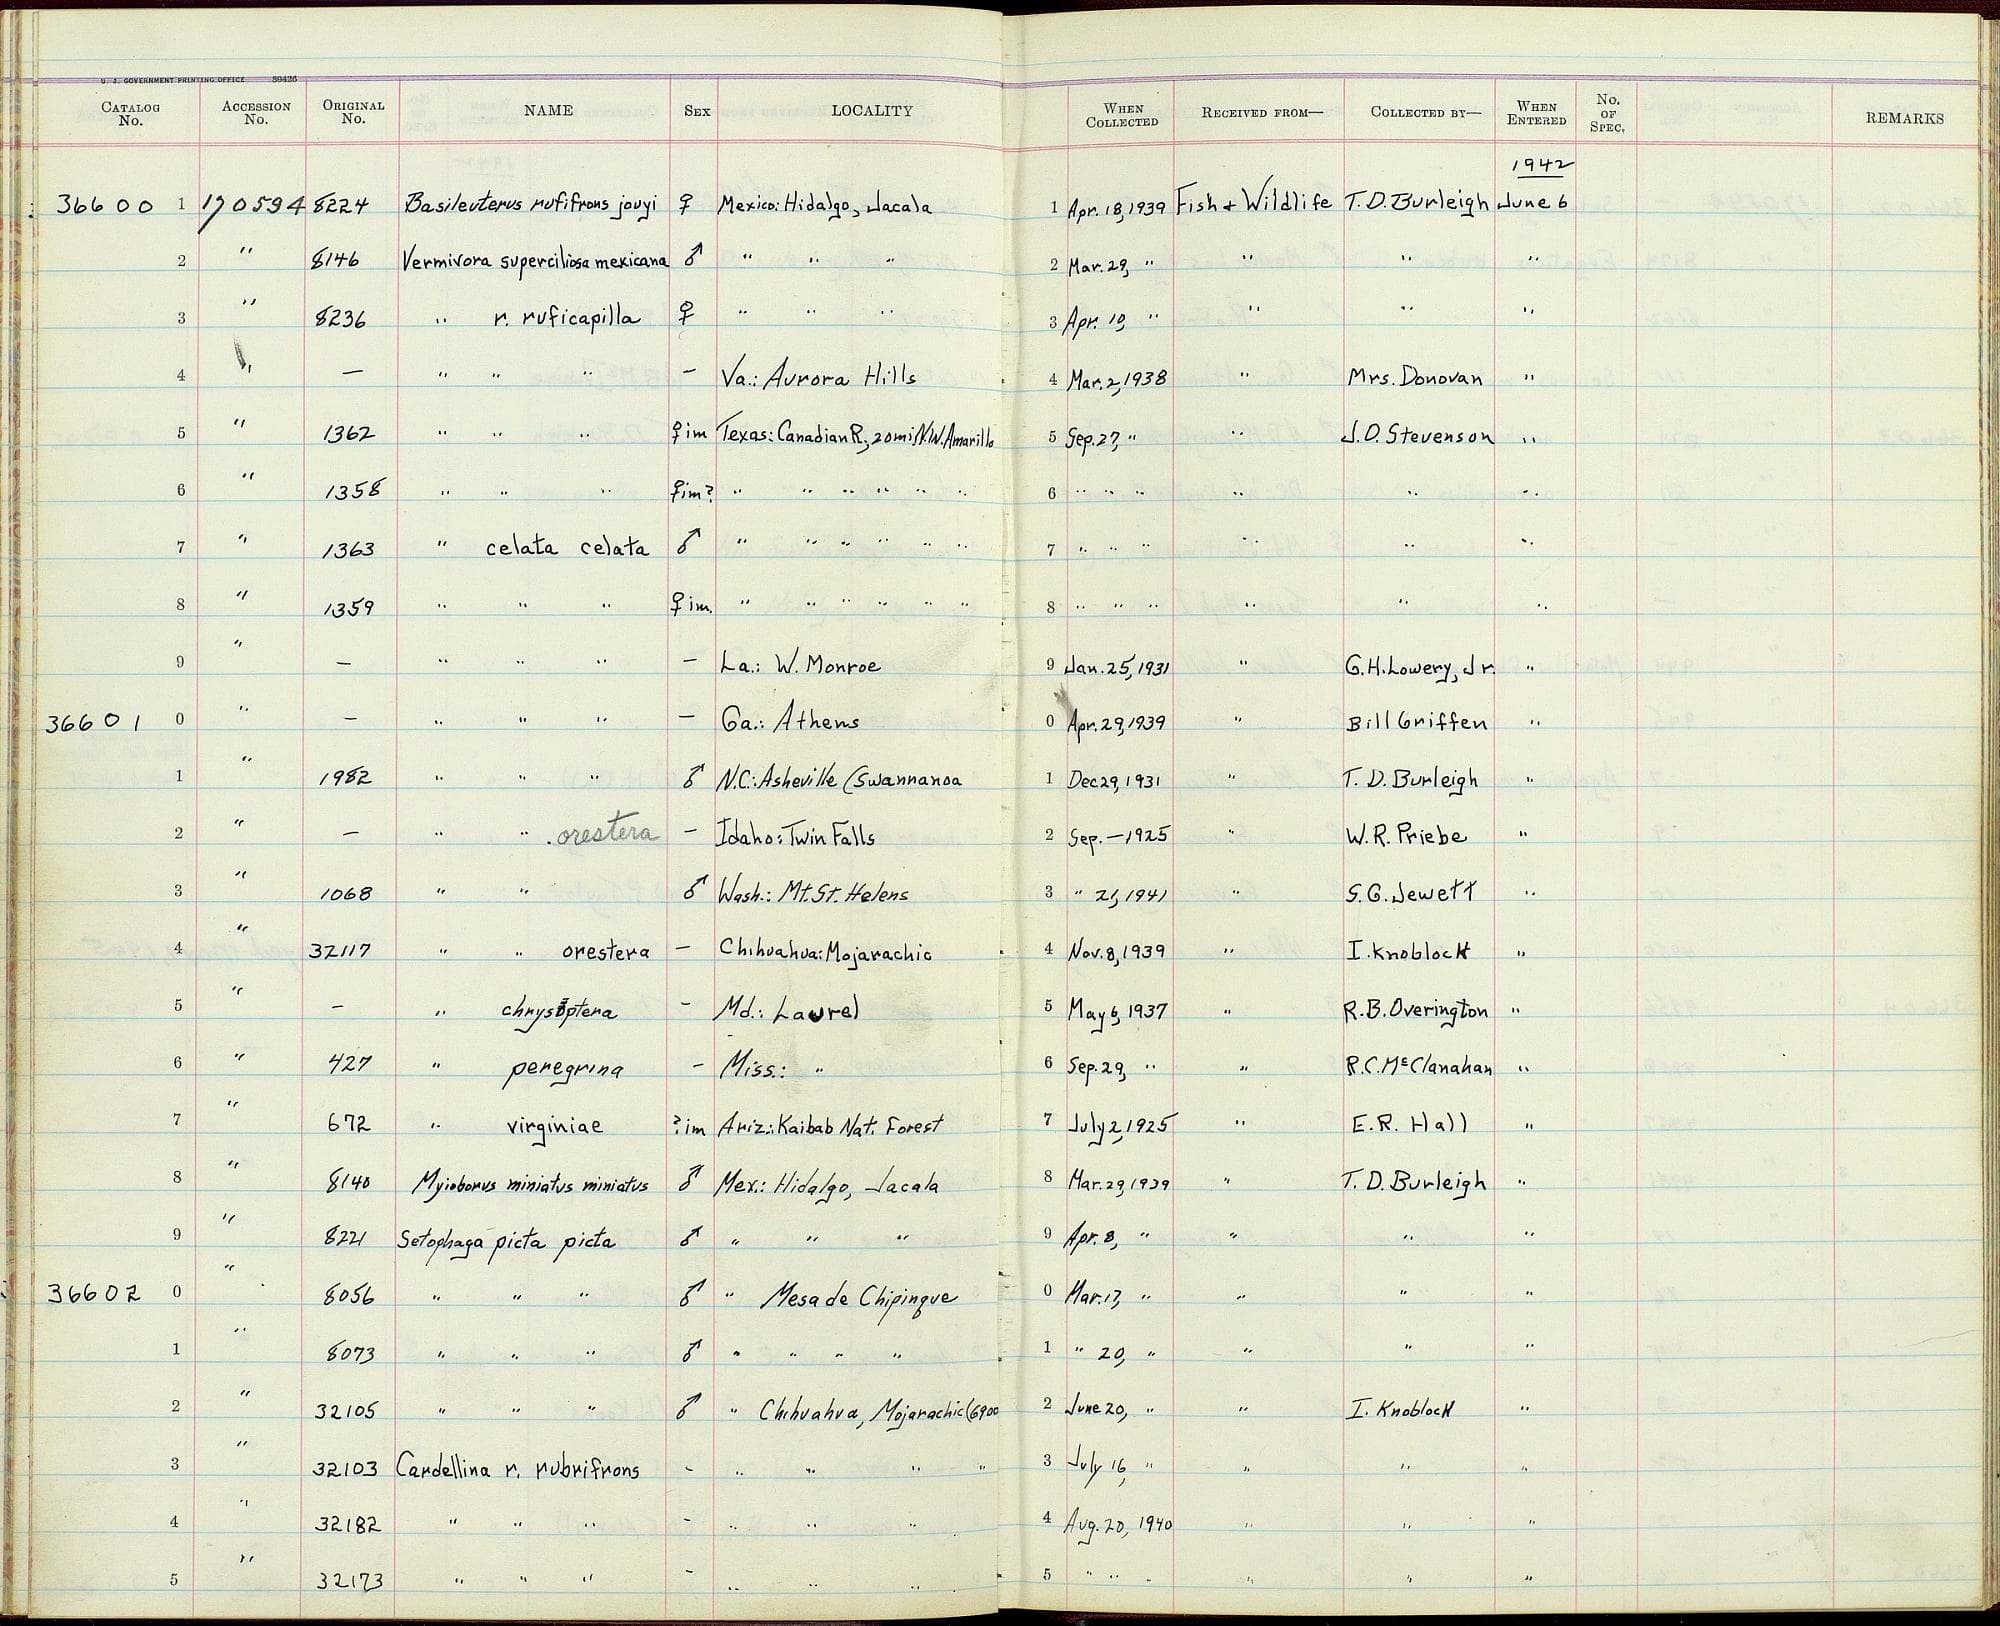 U. S. GOVERNMENT PRINTING OFFICE 39426
CATALOG No. ACCESSION No. ORIGINAL No. NAME SEX LOCALITY WHEN COLLECTED RECEIVED FROM— COLLECTED BY— WHEN ENTERED No. OF SPEC. REMARKS
1942
36600 1 170594 8224 Basileuterus rufifrons jouyi ♀ Mexico: Hidalgo, Jacala 1 Apr. 18, 1939 Fish + Wildlife T. D. Burleigh June 6
2 " 8146 Vermivora superciliosa mexicana ♂ " " " 2 Mar. 29, " " " "
3 " 8236 " r. ruficapilla ♀ " " " 3 Apr. 10, " " " "
4 " — " " " — Va.: Aurora Hills 4 Mar. 2, 1938 " Mrs. Donovan "
5 " 1362 " " " ♀ im Texas: Canadian R., 20 mi N.W. Amarillo 5 Sep. 27, " " J. O. Stevenson "
6 " 1358 " " " ♀ im? " " " " " " 6 " " " " " "
7 " 1363 " celata celata ♂ " " " " " " 7 " " " " " "
8 " 1359 " " " ♀ im. " " " " " " 8 " " " " " "
9 " — " " " — La.: W. Monroe 9 Jan. 25, 1931 " G. H. Lowery, Jr. "
36601 0 " — " " " — Ga.: Athens 0 Apr. 29, 1939 " Bill Griffen "
1 " 1982 " " " ♂ N.C.: Asheville (Swannanoa 1 Dec 29, 1931 " T. D. Burleigh "
2 " — " " . orestera — Idaho: Twin Falls 2 Sep. — 1925 " W. R. Priebe "
3 " 1068 " " ♂ Wash.: Mt. St. Helens 3 " 21, 1941 " S. G. Jewett "
4 " 32117 " " orestera — Chihuahua: Mojarachic 4 Nov. 8, 1939 " I. Knobloch "
5 " — " chrysoptera — Md.: Laurel 5 May 6, 1937 " R. B. Overington "
6 " 427 " peregrina — Miss.: " 6 Sep. 29, " " R. C. McClanahan "
7 " 672 " virginiae ? im Ariz.: Kaibab Nat. Forest 7 July 2, 1925 " E. R. Hall "
8 " 8140 Myioborus miniatus miniatus ♂ Mex.: Hidalgo, Jacala 8 Mar. 29, 1939 " T. D. Burleigh "
9 " 8221 Setophaga picta picta ♂ " " " 9 Apr. 8, " " " "
36602 0 " 8056 " " " ♂ " Mesa de Chipinque 0 Mar. 17, " " " "
1 " 8073 " " " ♂ " " " " 1 " 20, " " " "
2 " 32105 " " " ♂ " Chihuahua, Mojarachic (6900 2 June 20, " " I. Knobloch "
3 " 32103 Cardellina r. rubrifrons - " " " " 3 July 16, " " " "
4 " 32182 " " " - " " " 4 Aug. 20, 1940 " " "
5 " 32173 " " " - " " " 5 " " " " " "